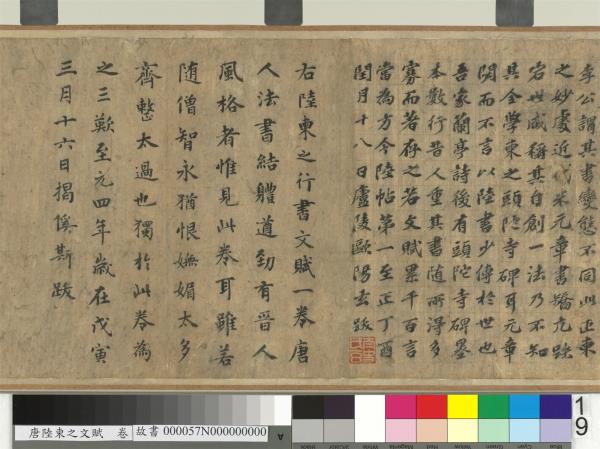 李公謂其書變態不同此正柬
之妙處近代米元章書驕尤跌
宕世咸稱其自創一法乃不知
其全學柬之頭陁寺碑耳元章
閟而不言以陸書少傳於世也
吾家蘭亭詩後有頭陀寺碑墨
本數行昔人重其書随所得多
寡而著存之若文賦累千百言
當為方今陸帖第一至正丁酉
閏月十八日廬陵歐陽玄跋
右陸柬之行書文賦一卷唐
人法書結體遒勁有晋人
風格者惟見此卷耳雖若
随僧智永猶恨嫵媚太多
齊整太過也獨於此卷為
之三歎至元四年歲在戊寅
三月十六日揭傒斯跋
唐陸柬之文賦 卷
故書 000057N000000000
A
19